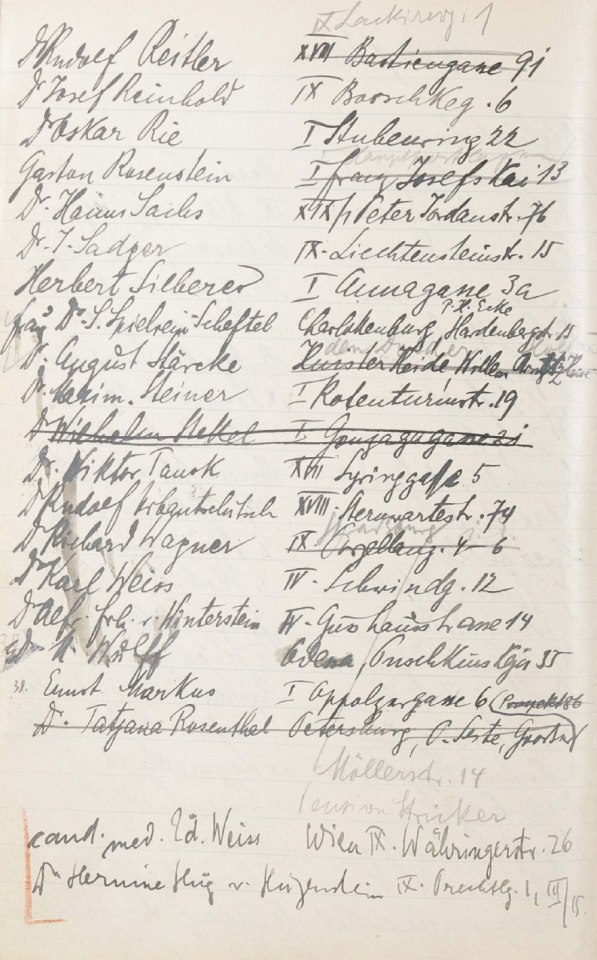 IX Lackirerg. 1
Dr Rudolf Reitler XVIII Bastiengasse 91
Dr Josef Reinhold IX Boerschkeg. 6
Dr Oskar Rie I Stubenring 22
Gaston Rosenstein I Franz Josefs Kai 13
Dr. Hanns Sachs XIX/1 Peter Jordanstr. 76
Dr. I. Sadger IX. Liechtensteinstr. 15
Herbert Silberer I Annagasse 3a
P. K. Ecke
Frau Dr. S. Spielrein Scheftel Charlottenburg, Hardenbergstr.
Dr. August Stärcke Huister Heide, Willem
Dr. Maxim. Steiner I Rotenturmstr. 19
Dr Wilhelm Stekel I Gonzagagasse 21
Dr. Viktor Tausk XVII Syringgasse 5
Dr Rudolf Urbantschitsch XVIII Sternwartestr. 74
Dr Richard Wagner IX 4-6
Dr Karl Weiss IV. Schwindg. 12
Dr Alfr. Frh. v. Winterstein IV Gusshausstrasse 14
M. Wulff Odessa, Puschkinskaja 55
Ernst Markus I Oppolzergasse 6
Dr. Tatjana Rosenthal Petersburg,
Möllerstr. 14
Pension Stricker
cand. med. Ed. Weiss Wien IX. Währingerstr. 26
Dr Hermine Hug v. Hugenstein IX. Prechtlg. 1, IV/15.